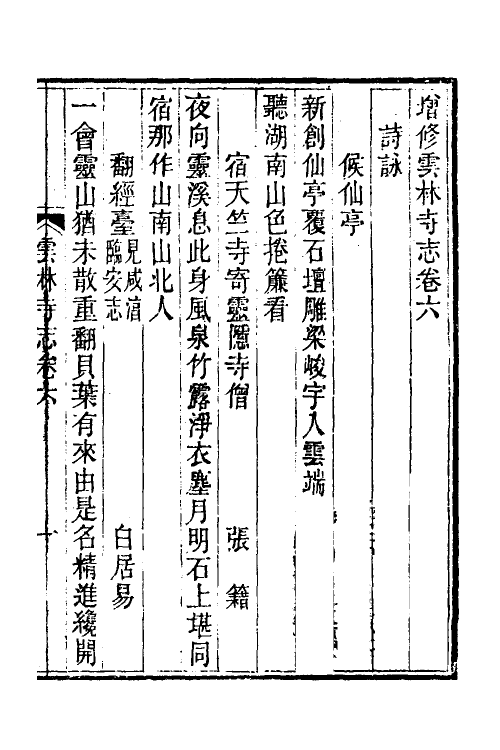 增修雲林寺志卷六
詩詠
候仙亭
新創仙亭覆石壇雕梁峻宇入雲端
聽湖南山色捲簾看
宿天竺寺寄靈隱寺僧 張籍
夜向靈溪息此身風泉竹露淨衣塵月明石上堪同
宿那作山南山北人
翻經臺見咸淳臨安志 白居易
一會靈山猶未散重翻貝葉有來由是名精進纔開
雲林寺志卷六 一